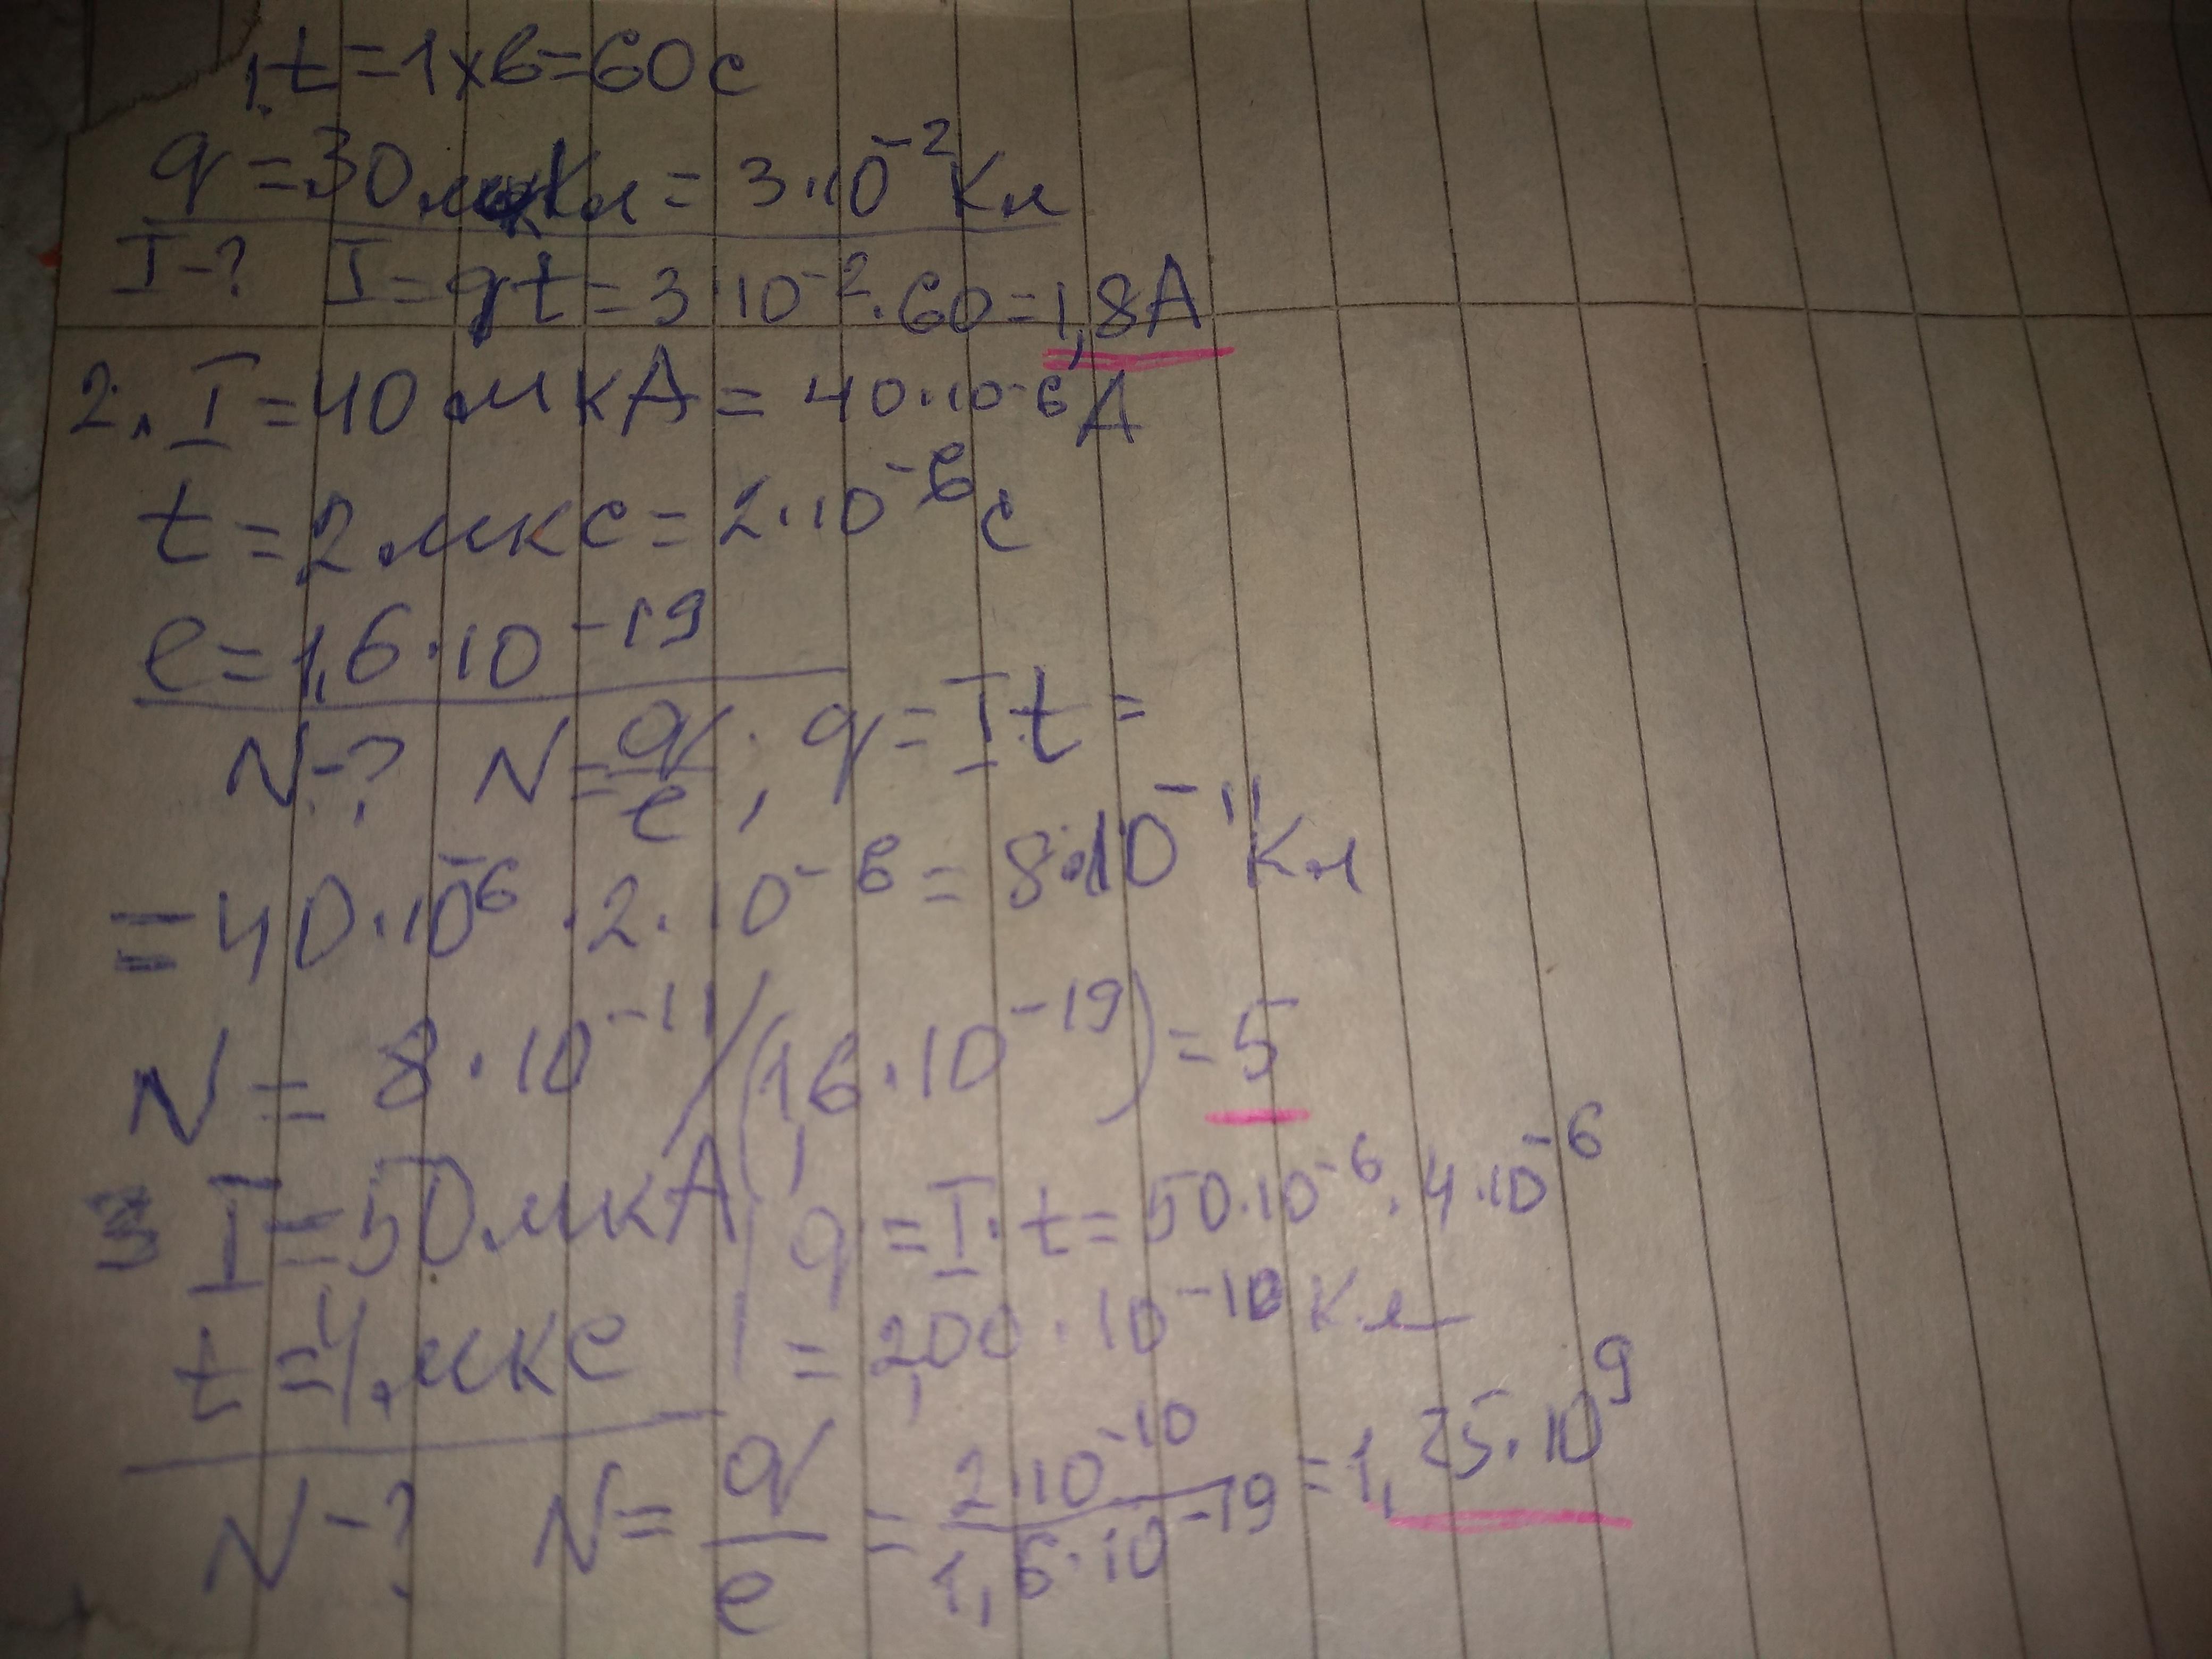 1. t=1хв=60с
q=30мКл=3·10⁻²Кл
I-? I=qt=3·10⁻²·60=1,8А
2. I=40мкА=40·10⁻⁶А
t=2мкс=2·10⁻⁶с
e=1,6·10⁻¹⁹
N-? N=q/e; q=It=
=40·10⁻⁶·2·10⁻⁶=8·10⁻¹¹Кл
N=8·10⁻¹¹/(1,6·10⁻¹⁹)=5
3 I=50мкА q=I·t=50·10⁻⁶·4·10⁻⁶
t=4мкс =2,00·10⁻¹⁰Кл
N-? N=q/e=2·10⁻¹⁰/1,6·10⁻¹⁹=1,25·10⁹